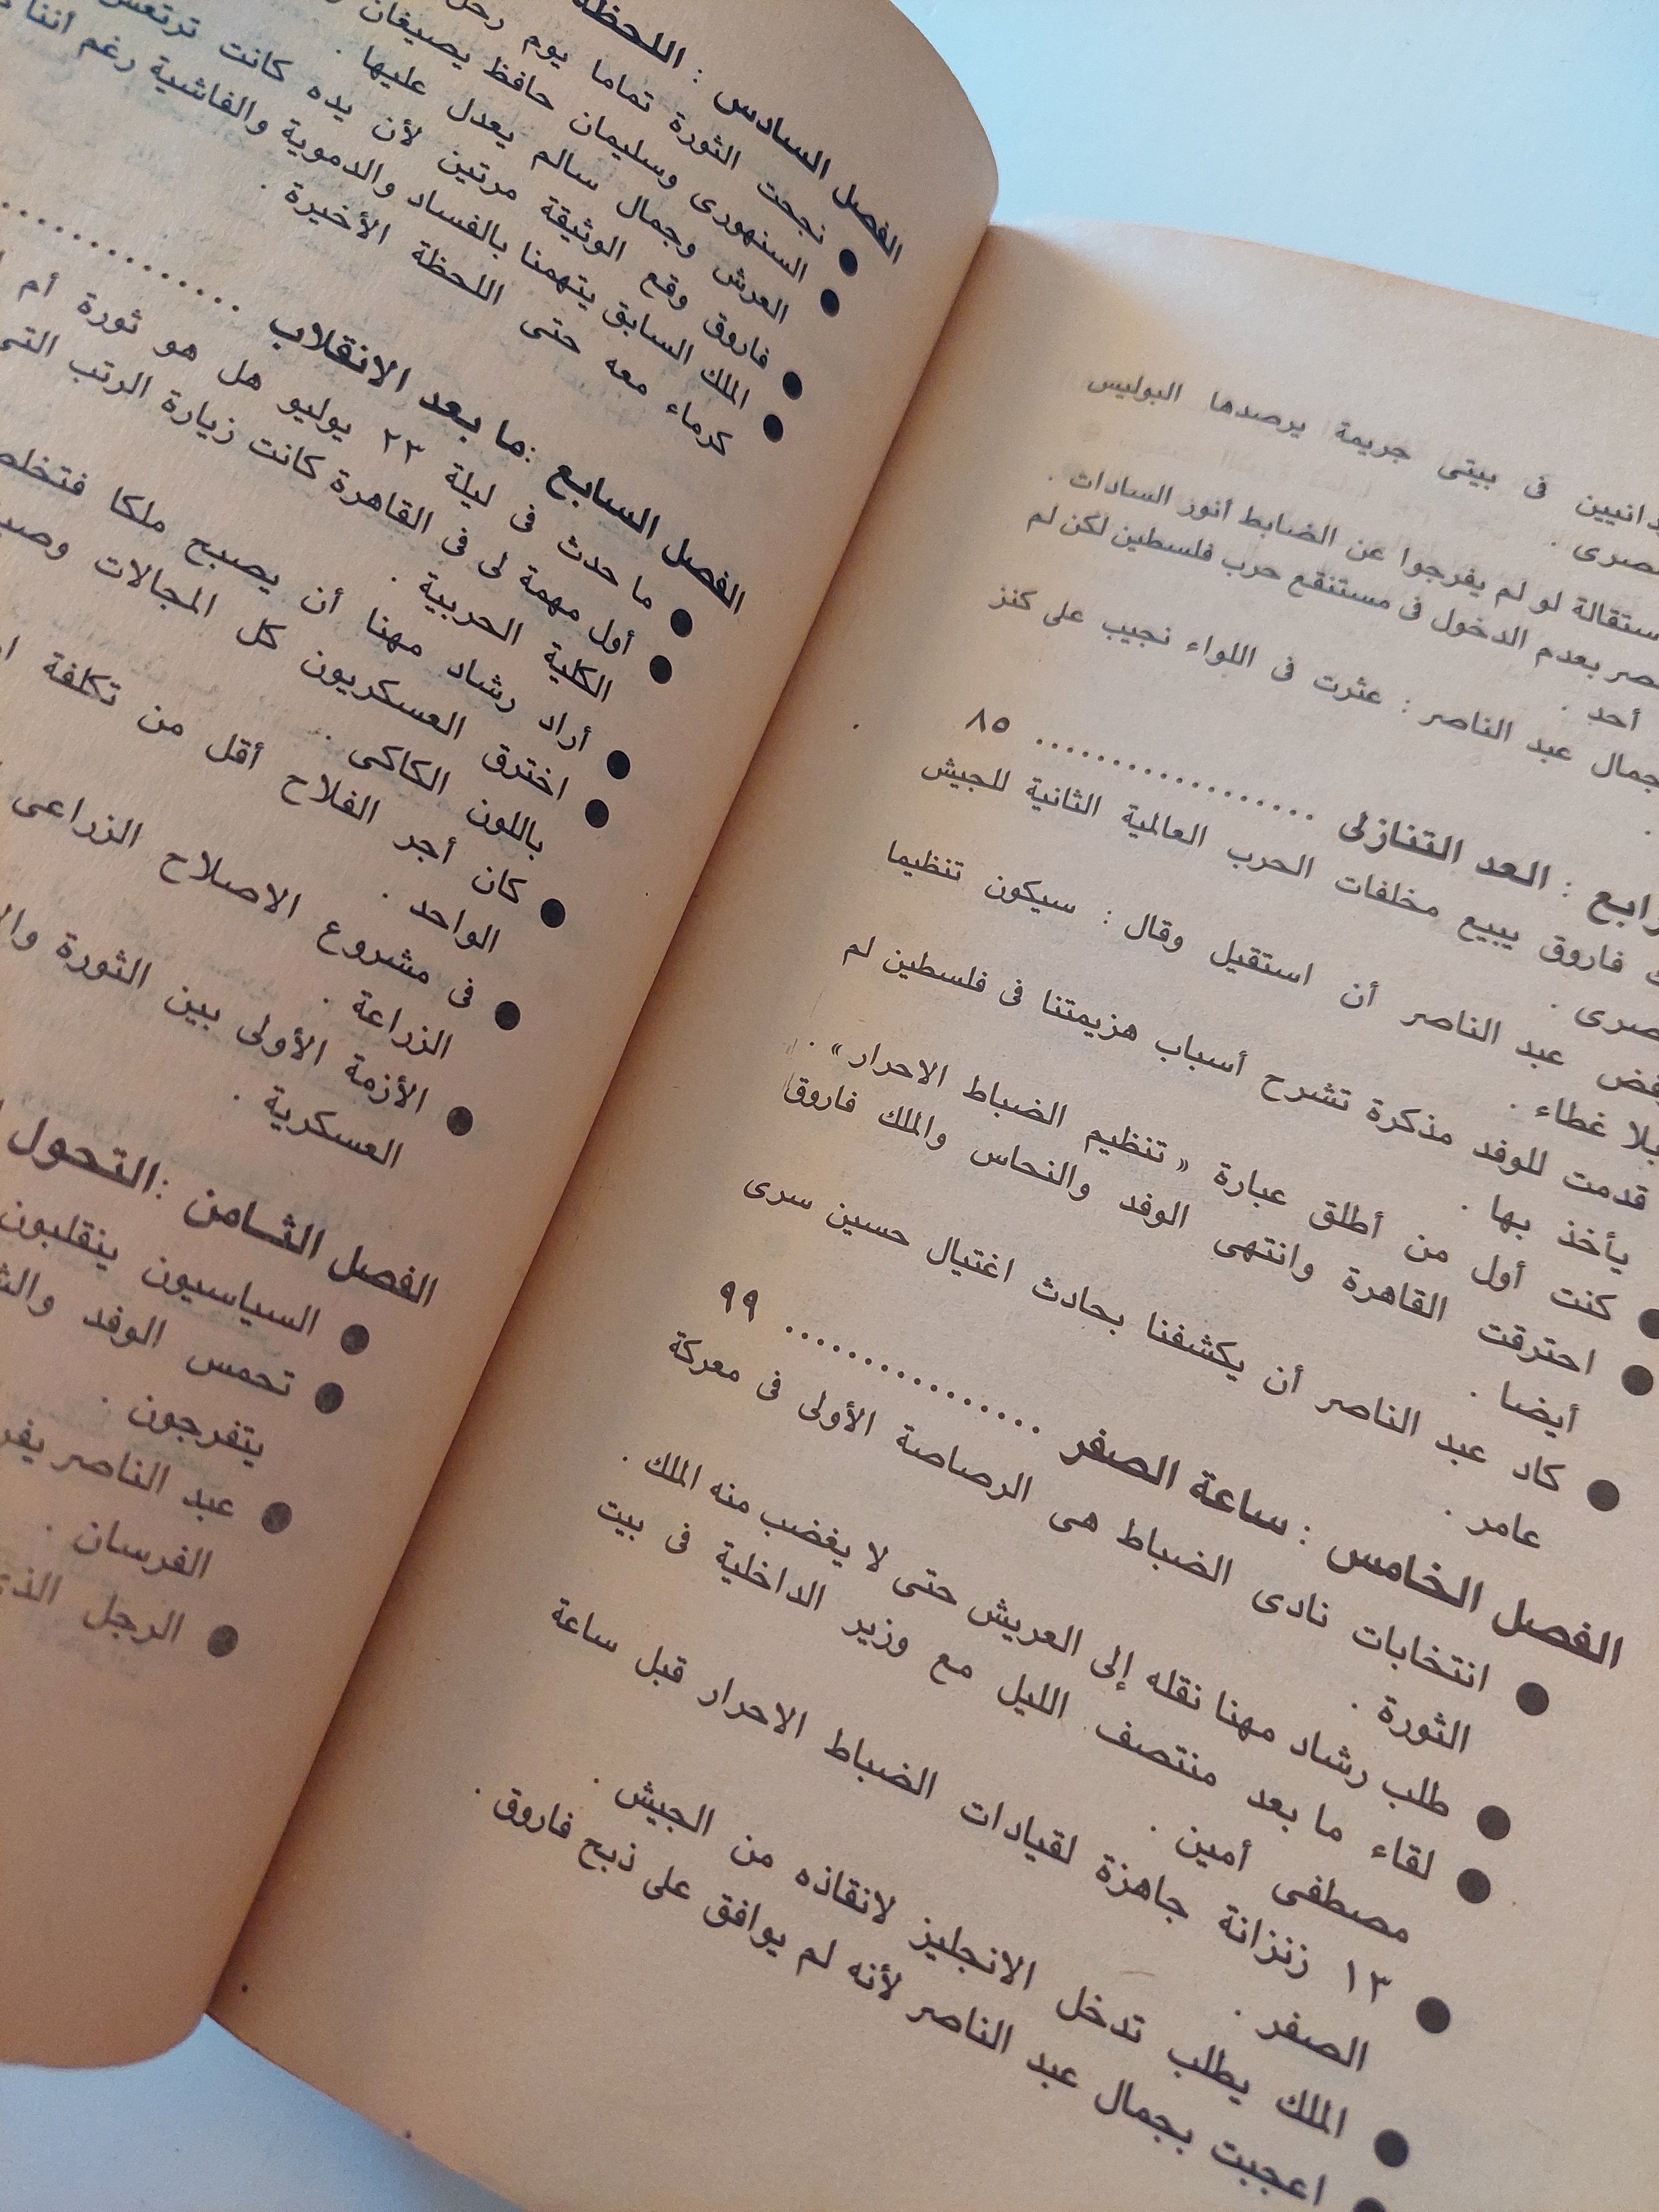 فى بيتى جريمة يرصدها البوليس
ستقالة لو لم يفرجوا عن الضابط أنور السادات .
بعدم الدخول فى مستنقع حرب فلسطين لكن لم
أحد .
جمال عبد الناصر : عثرت فى اللواء نجيب على كنز
.
رابع : العد التنازلى ................ ٨٥
فاروق يبيع مخلفات الحرب العالمية الثانية للجيش
عبد الناصر أن استقيل وقال : سيكون تنظيما
بلا غطاء .
قدمت للوفد مذكرة تشرح أسباب هزيمتنا فى فلسطين لم
يأخذ بها .
● كنت أول من أطلق عبارة « تنظيم الضباط الاحرار » .
● احترقت القاهرة وانتهى الوفد والنحاس والملك فاروق
أيضا .
● كاد عبد الناصر أن يكشفنا بحادث اغتيال حسين سرى
عامر .
الفصل الخامس : ساعة الصفر ................ ٩٩
● انتخابات نادى الضباط هى الرصاصة الأولى فى معركة
الثورة .
● طلب رشاد مهنا نقله إلى العريش حتى لا يغضب منه الملك .
● لقاء ما بعد منتصف الليل مع وزير الداخلية فى بيت
مصطفى أمين .
● ١٣ زنزانة جاهزة لقيادات الضباط الاحرار قبل ساعة
الصفر .
● الملك يطلب تدخل الانجليز لانقاذه من الجيش .
● اعجبت بجمال عبد الناصر لأنه لم يوافق على ذبح فاروق .
الفصل السادس : اللحظة
● نجحت الثورة تماما يوم رحل
● السنهورى وسليمان حافظ يصيغان
العرش وجمال سالم يعدل عليها .
● فاروق وقع الوثيقة مرتين لأن يده كانت ترتعش
● الملك السابق يتهمنا بالفساد والدموية والفاشية رغم أننا
كرماء معه حتى اللحظة الأخيرة .
الفصل السابع : ما بعد الانقلاب ................
● ما حدث فى ليلة ٢٣ يوليو هل هو ثورة أم
● أول مهمة لى فى القاهرة كانت زيارة الرتب التى
الكلية الحربية .
● أراد رشاد مهنا أن يصبح ملكا
● اخترق العسكريون كل المجالات
باللون الكاكى .
● كان أجر الفلاح أقل من تكلفة
الواحد .
● فى مشروع الاصلاح الزراعى
الزراعة .
● الأزمة الأولى بين الثورة
العسكرية .
الفصل الثامن : التحول
● السياسيون ينقلبون
● تحمس الوفد
يتفرجون .
● عبد الناصر
الفرسان .
● الرجل